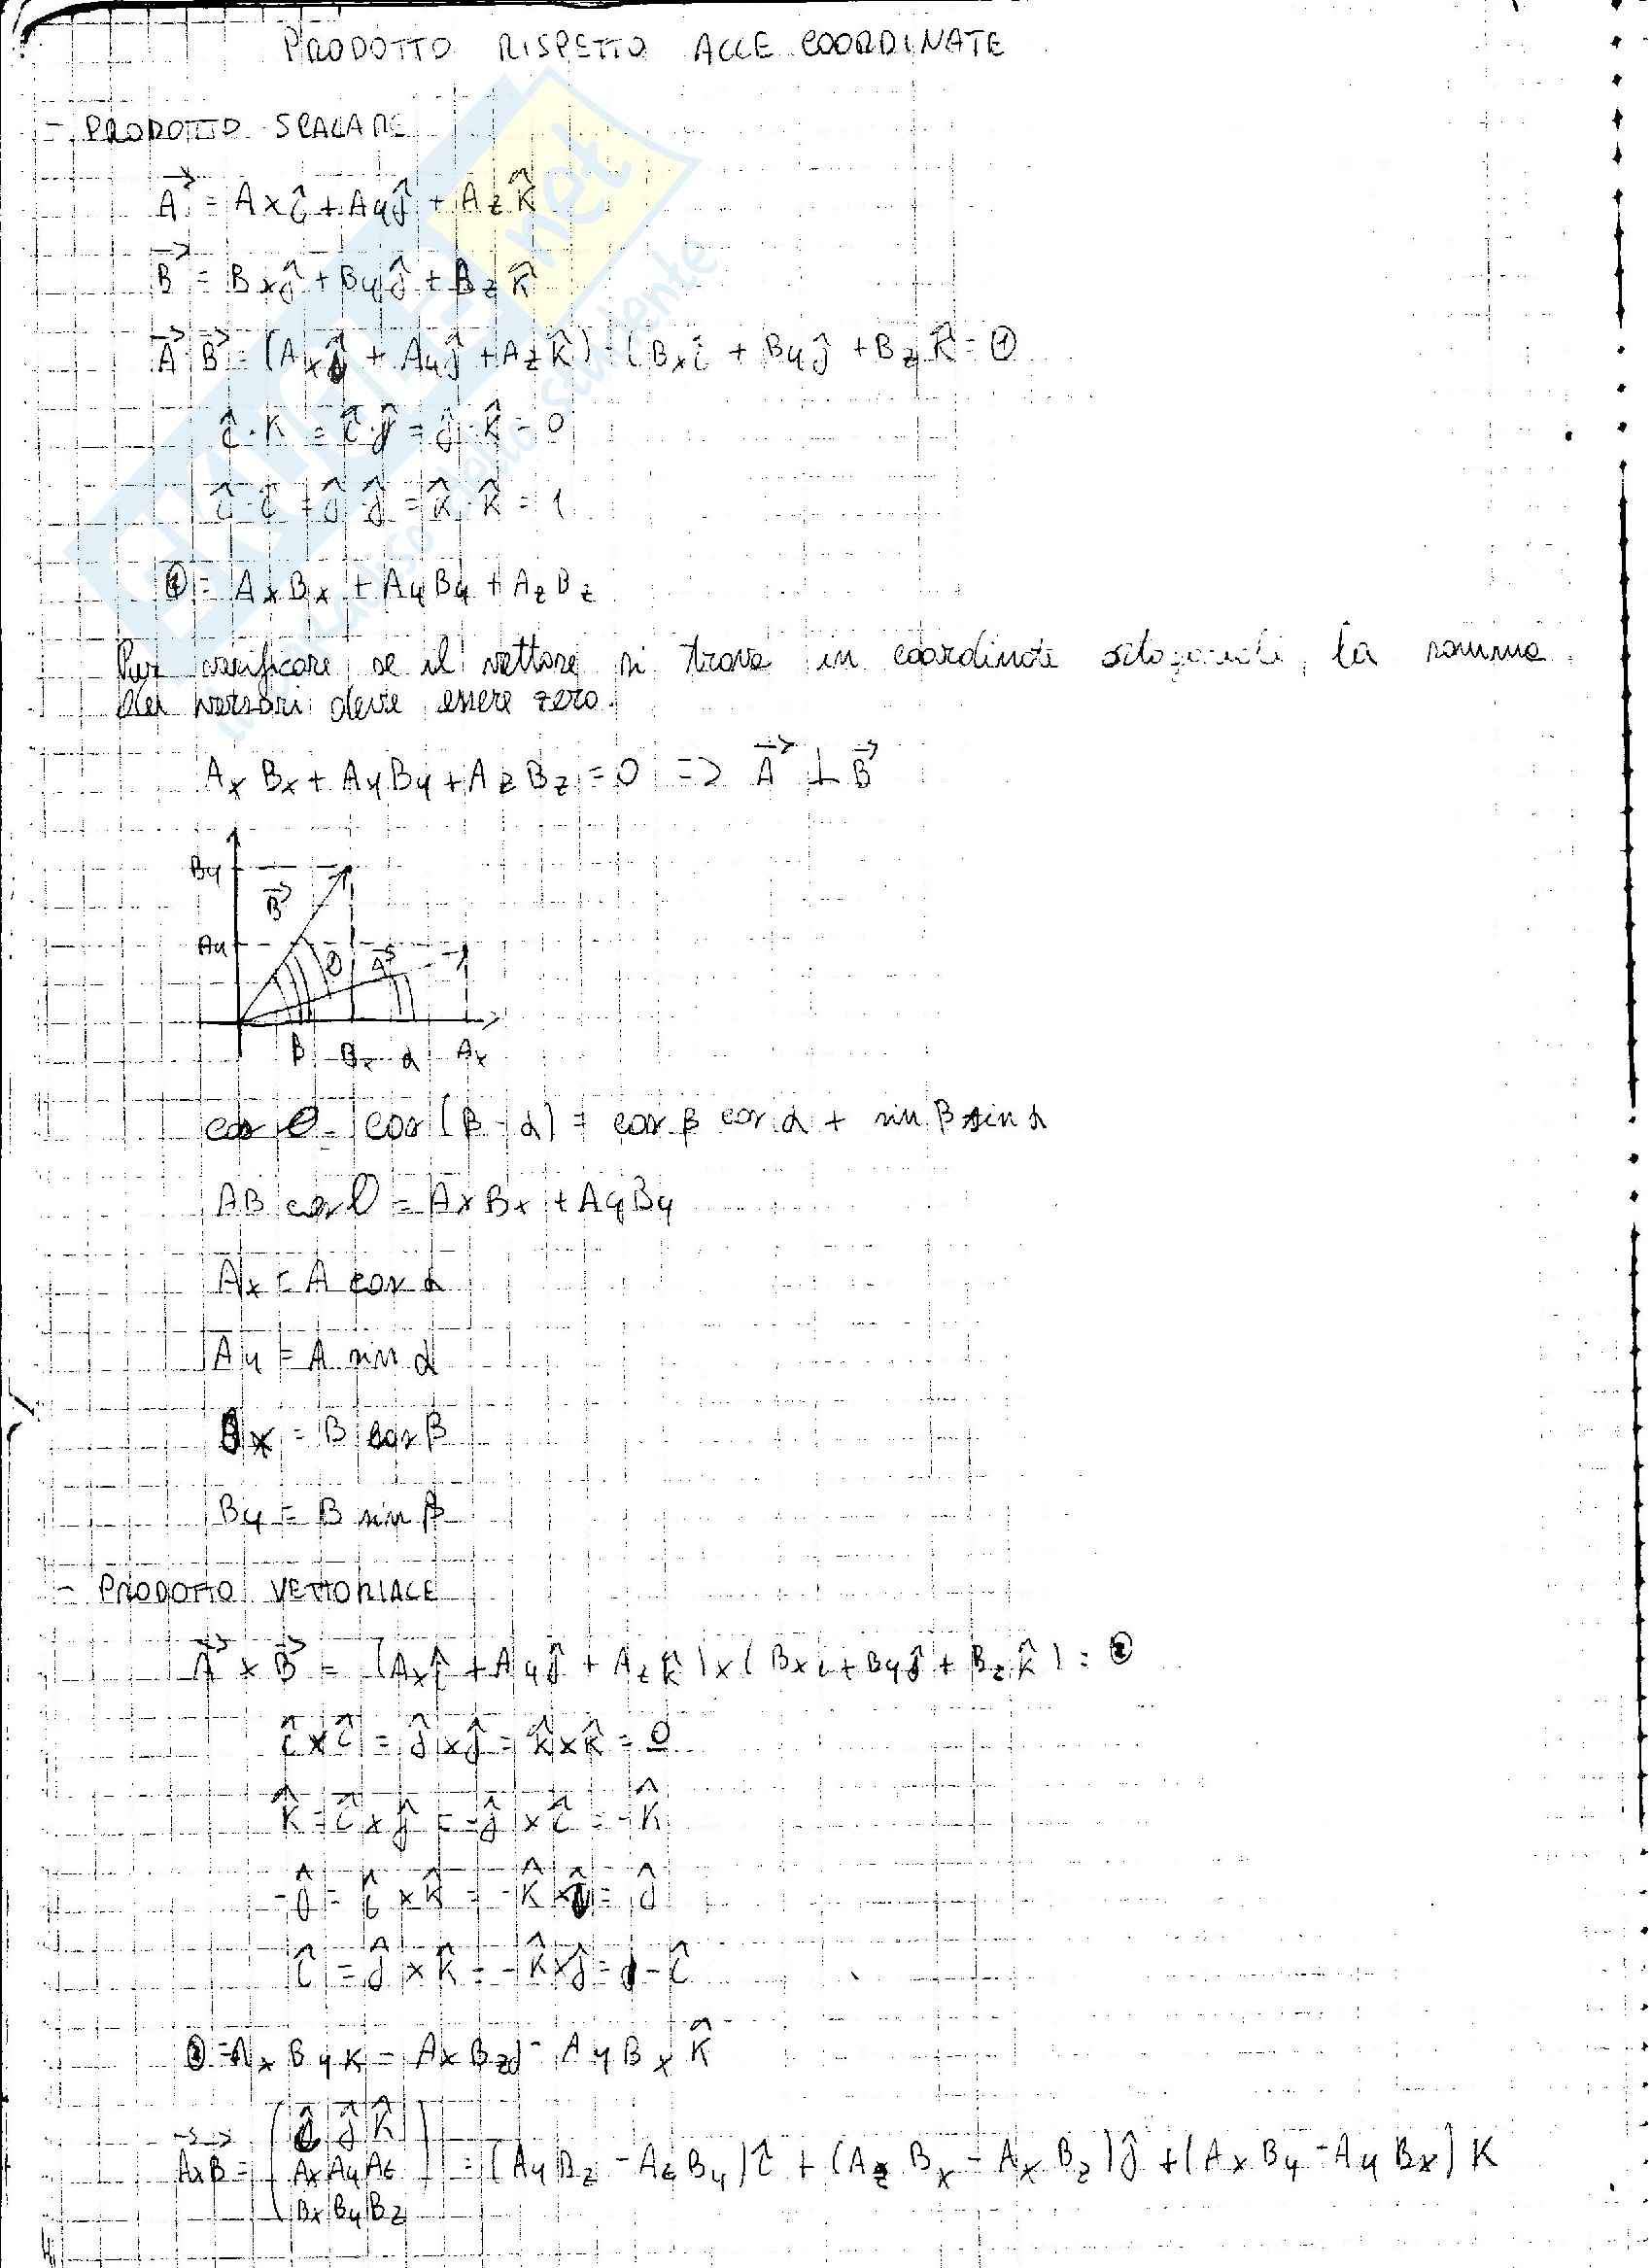 PRODOTTO RISPETTO ALLE COORDINATE
- PRODOTTO SCALARE
A⃗ = Ax î + Ay ĵ + Az K̂
B⃗ = Bx ĵ + By ĵ + Bz K̂
A⃗ B⃗ = (Ax î + Ay ĵ + Az K̂) · (Bx î + By ĵ + Bz K̂ = ①
î · K = î · ĵ = ĵ · K̂ = 0
î · î = ĵ · ĵ = K̂ · K̂ = 1
① = Ax Bx + Ay By + Az Bz
Per verificare se il vettore si trova in coordinate ortogonali, la somma
dei versori deve essere zero.
Ax Bx + Ay By + Az Bz = 0 => A⃗ ⊥ B⃗
By
B⃗
Ay
θ A⃗
β Bx α Ax
cos θ = cos (β - α) = cos β cos α + sin β sin α
AB cos θ = Ax Bx + Ay By
Ax = A cos α
Ay = A sin α
Bx = B cos β
By = B sin β
- PRODOTTO VETTORIALE
A⃗ x B⃗ = (Ax î + Ay ĵ + Az K̂) x (Bx i + By ĵ + Bz K̂) = ②
î x î = ĵ x ĵ = K̂ x K̂ = 0
K̂ = î x ĵ = -ĵ x î = -K̂
-ĵ = î x K̂ = -K̂ x î = ĵ
î = ĵ x K̂ = -K̂ x ĵ = -î
② = Ax By K - Ax Bz j - Ay Bx K̂
A⃗xB⃗ = ( î ĵ K̂
Ax Ay Az
Bx By Bz ) = (Ay Bz - Az By) î + (Az Bx - Ax Bz) ĵ + (Ax By - Ay Bx) K